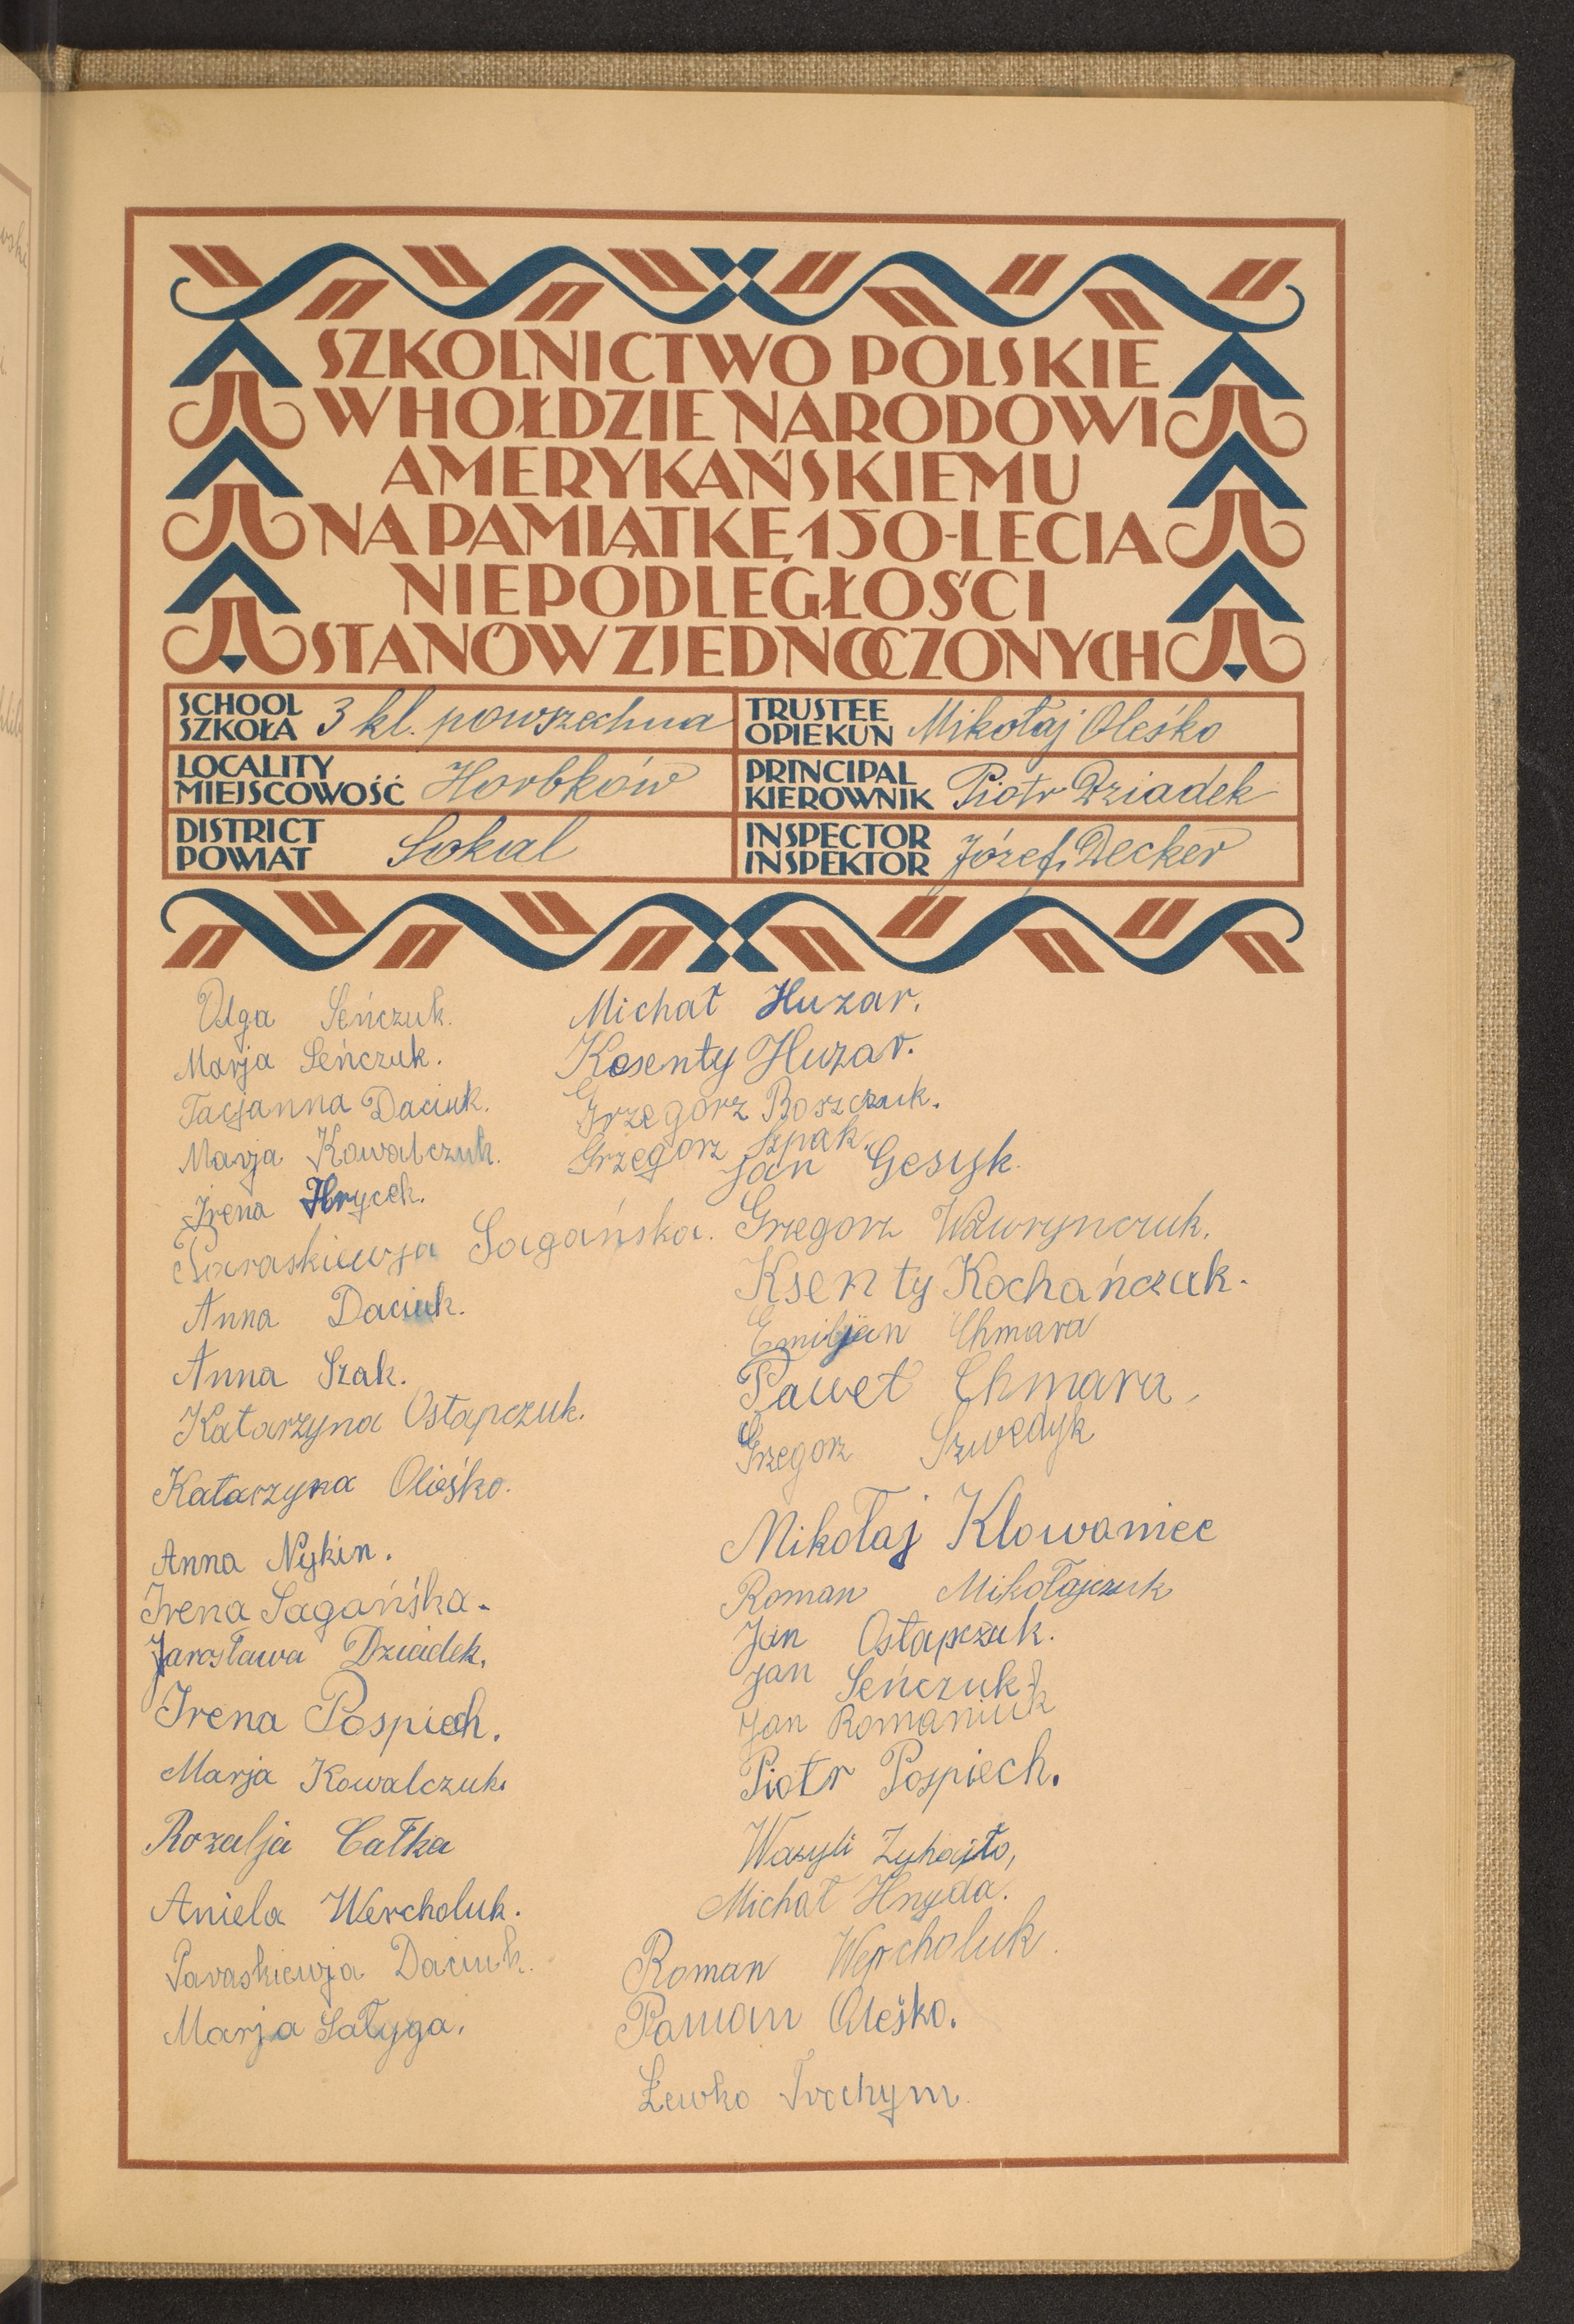 SZKOLNICTWO POLSKIE
W HOŁDZIE NARODOWI
AMERYKAŃSKIEMU
NA PAMIĄTKĘ 150-LECIA
NIEPODLEGŁOŚCI
STANÓW ZJEDNOCZONYCH
SCHOOL
SZKOŁA 3 kl. powszechna
TRUSTEE
OPIEKUN Mikołaj Oleśko
LOCALITY
MIEJSCOWOŚĆ Horbków
PRINCIPAL
KIEROWNIK Piotr Dziadek
DISTRICT
POWIAT Sokal
INSPECTOR
INSPEKTOR Józef Decker
Olga Seńczuk.
Marja Seńczuk.
Tacjanna Daciuk.
Marja Kowalczuk.
Irena Hrycek.
Paraskiewja Sagańska.
Anna Daciuk.
Anna Szak.
Katarzyna Ostapczuk.
Katarzyna Olieśko.
Anna Nykin.
Irena Sagańśka.
Jarosława Dziadek.
Irena Pospiech.
Marja Kowalczuk.
Rozalja Całka
Aniela Wercholuk.
Paraskiewja Daciuk.
Marja Sałyga.
Michał Huzar.
Ksenty Huzar.
Grzegorz Boszczuk.
Grzegorz Szpak.
Jan Gesyk.
Grzegorz Wawrynczuk.
Ksenty Kochańczuk.
Emiljan Chmara
Paweł Chmara,
Grzegorz Szwedyk
Mikołaj Klowaniec
Roman Mikołajczuk
Jan Ostapczuk.
Jan Seńczuk.
Jan Romaniuk
Piotr Pospiech.
Wasyli
Michał Hnyda.
Roman Wercholuk.
Roman Oleśko.
Lewko Trochym.